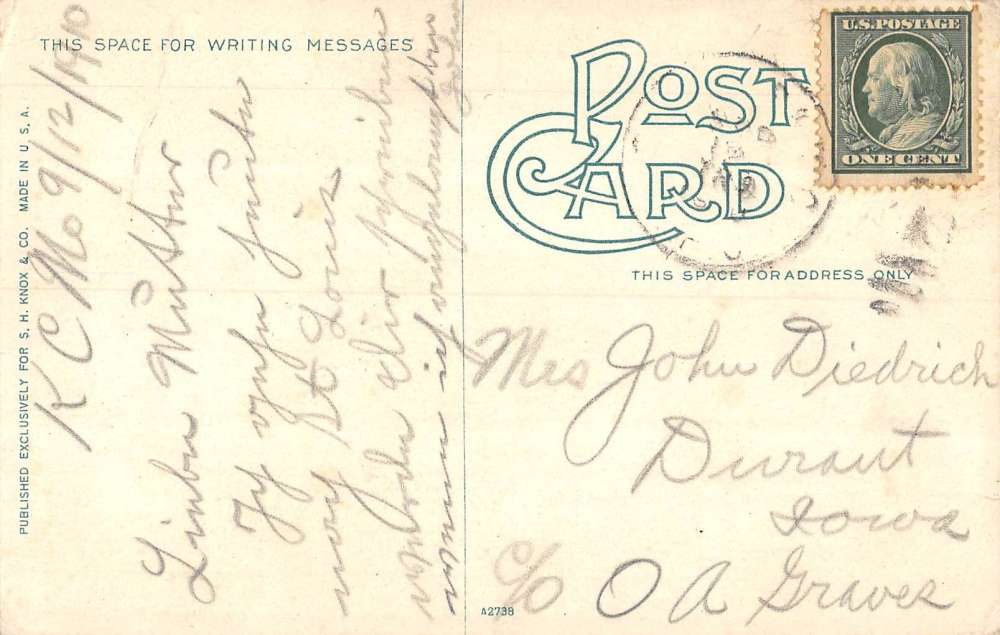 THIS SPACE FOR WRITING MESSAGES
PUBLISHED EXCLUSIVELY FOR S. H. KNOX & CO. MADE IN U. S. A.
K C Mo 9/12/1910
Liebe Mutter
Ich gehe heute
nach St Louis
werde Dir schreiben
wenn ich
POST
CARD
THIS SPACE FOR ADDRESS ONLY
U.S. POSTAGE
ONE CENT
Mrs John Diedrich
Durant
Iowa
c/o O A Graves
A2738